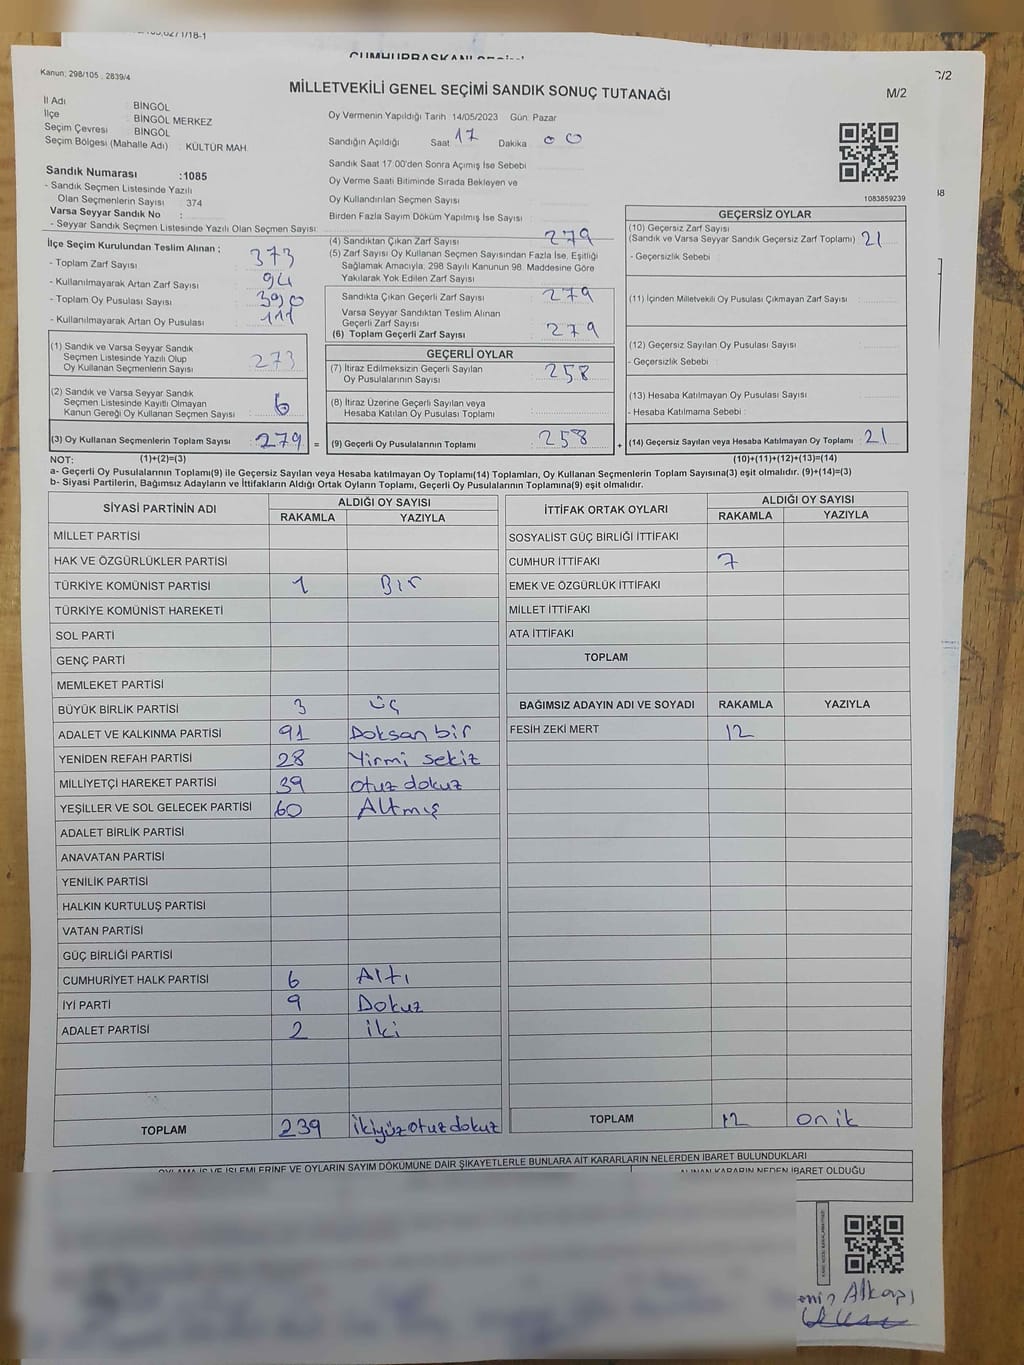 CUMHURBAŞKANI
Kanun; 298/105 , 2839/4
MİLLETVEKİLİ GENEL SEÇİMİ SANDIK SONUÇ TUTANAĞI
M/2
İl Adı : BİNGÖL
İlçe : BİNGÖL MERKEZ
Seçim Çevresi : BİNGÖL
Seçim Bölgesi (Mahalle Adı) : KÜLTÜR MAH.
Oy Vermenin Yapıldığı Tarih 14/05/2023 Gün: Pazar
Sandığın Açıldığı Saat 17 Dakika 00
Sandık Saat 17.00'den Sonra Açımış İse Sebebi
Oy Verme Saati Bitiminde Sırada Bekleyen ve
Oy Kullandırılan Seçmen Sayısı
Birden Fazla Sayım Döküm Yapılmış İse Sayısı
1083859239
Sandık Numarası :1085
- Sandık Seçmen Listesinde Yazılı
Olan Seçmenlerin Sayısı 374
Varsa Seyyar Sandık No :
- Seyyar Sandık Seçmen Listesinde Yazılı Olan Seçmen Sayısı:
İlçe Seçim Kurulundan Teslim Alınan ;
- Toplam Zarf Sayısı 373
- Kullanılmayarak Artan Zarf Sayısı 94
- Toplam Oy Pusulası Sayısı 390
- Kullanılmayarak Artan Oy Pusulası 111
(1) Sandık ve Varsa Seyyar Sandık
Seçmen Listesinde Yazılı Olup
Oy Kullanan Seçmenlerin Sayısı 273
(2) Sandık ve Varsa Seyyar Sandık
Seçmen Listesinde Kayıtlı Olmayan
Kanun Gereği Oy Kullanan Seçmen Sayısı 6
(3) Oy Kullanan Seçmenlerin Toplam Sayısı 279 =
(4) Sandıktan Çıkan Zarf Sayısı 279
(5) Zarf Sayısı Oy Kullanan Seçmen Sayısından Fazla İse, Eşitliği
Sağlamak Amacıyla, 298 Sayılı Kanunun 98. Maddesine Göre
Yakılarak Yok Edilen Zarf Sayısı
Sandıkta Çıkan Geçerli Zarf Sayısı 279
Varsa Seyyar Sandıktan Teslim Alınan
Geçerli Zarf Sayısı
(6) Toplam Geçerli Zarf Sayısı 279
GEÇERLİ OYLAR
(7) İtiraz Edilmeksizin Geçerli Sayılan
Oy Pusulalarının Sayısı 258
(8) İtiraz Üzerine Geçerli Sayılan veya
Hesaba Katılan Oy Pusulası Toplamı
(9) Geçerli Oy Pusulalarının Toplamı 258 +
GEÇERSİZ OYLAR
(10) Geçersiz Zarf Sayısı
(Sandık ve Varsa Seyyar Sandık Geçersiz Zarf Toplamı) 21
- Geçersizlik Sebebi :
(11) İçinden Milletvekili Oy Pusulası Çıkmayan Zarf Sayısı
(12) Geçersiz Sayılan Oy Pusulası Sayısı
- Geçersizlik Sebebi :
(13) Hesaba Katılmayan Oy Pusulası Sayısı
- Hesaba Katılmama Sebebi :
(14) Geçersiz Sayılan veya Hesaba Katılmayan Oy Toplamı 21
NOT: (1)+(2)=(3) (10)+(11)+(12)+(13)=(14)
a- Geçerli Oy Pusulalarının Toplamı(9) ile Geçersiz Sayılan veya Hesaba katılmayan Oy Toplamı(14) Toplamları, Oy Kullanan Seçmenlerin Toplam Sayısına(3) eşit olmalıdır. (9)+(14)=(3)
b- Siyasi Partilerin, Bağımsız Adayların ve İttifakların Aldığı Ortak Oyların Toplamı, Geçerli Oy Pusulalarının Toplamına(9) eşit olmalıdır.
SİYASİ PARTİNİN ADI ALDIĞI OY SAYISI
RAKAMLA YAZIYLA
MİLLET PARTİSİ
HAK VE ÖZGÜRLÜKLER PARTİSİ
TÜRKİYE KOMÜNİST PARTİSİ 1 Bir
TÜRKİYE KOMÜNİST HAREKETİ
SOL PARTİ
GENÇ PARTİ
MEMLEKET PARTİSİ
BÜYÜK BİRLİK PARTİSİ 3 üç
ADALET VE KALKINMA PARTİSİ 91 Doksan bir
YENİDEN REFAH PARTİSİ 28 Yirmi sekiz
MİLLİYETÇİ HAREKET PARTİSİ 39 otuz dokuz
YEŞİLLER VE SOL GELECEK PARTİSİ 60 Altmış
ADALET BİRLİK PARTİSİ
ANAVATAN PARTİSİ
YENİLİK PARTİSİ
HALKIN KURTULUŞ PARTİSİ
VATAN PARTİSİ
GÜÇ BİRLİĞİ PARTİSİ
CUMHURİYET HALK PARTİSİ 6 Altı
İYİ PARTİ 9 Dokuz
ADALET PARTİSİ 2 iki
TOPLAM 239 ikiyüzotuzdokuz
İTTİFAK ORTAK OYLARI ALDIĞI OY SAYISI
RAKAMLA YAZIYLA
SOSYALİST GÜÇ BİRLİĞİ İTTİFAKI
CUMHUR İTTİFAKI 7
EMEK VE ÖZGÜRLÜK İTTİFAKI
MİLLET İTTİFAKI
ATA İTTİFAKI
TOPLAM
BAĞIMSIZ ADAYIN ADI VE SOYADI RAKAMLA YAZIYLA
FESİH ZEKİ MERT 12
TOPLAM 12 on ik
OYLAMA İŞ VE İŞLEMLERİNE VE OYLARIN SAYIM DÖKÜMÜNE DAİR ŞİKAYETLERLE BUNLARA AİT KARARLARIN NELERDEN İBARET BULUNDUKLARI
ALINAN KARARIN NEDEN İBARET OLDUĞU
Alkapı